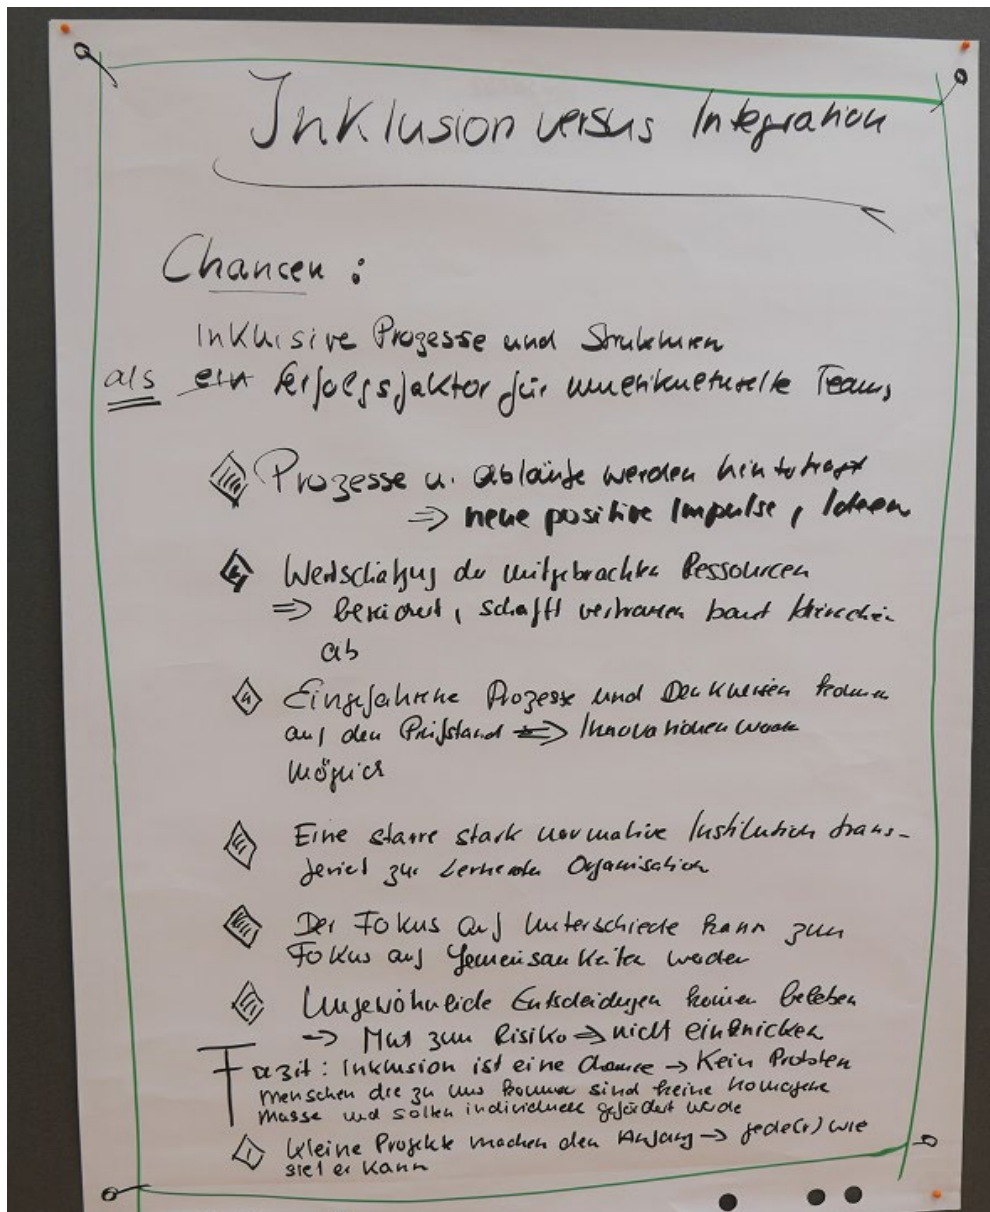 Inklusion versus Integration
Chancen :
Inklusive Prozesse und Strukturen
als ein Erfolgsfaktor für multikulturelle Teams
Prozesse u. abläufe werden hinterfragt
=> neue positive Impulse, Ideen
Wertschätzung der mitgebrachten Ressourcen
=> bereichert, schafft vertrauen baut Hierarchien
ab
Eingefahrene Prozesse und Denkweisen kommen
auf den Prüfstand => Innovationen werden
möglich
Eine starre stark normative Institution trans-
feriert zur Lernenden Organisation
Der Fokus auf Unterschiede kann zum
Fokus auf Gemeinsamkeiten werden
Ungewöhnliche Entscheidungen können beleben
-> Mut zum Risiko => nicht einknicken
Fazit : Inklusion ist eine Chance -> Kein Problem
menschen die zu uns kommen sind keine homogene
Masse und sollen individuell gefördert werde
kleine Projekte machen den Anfang -> jede(r) wie
sie/er kann